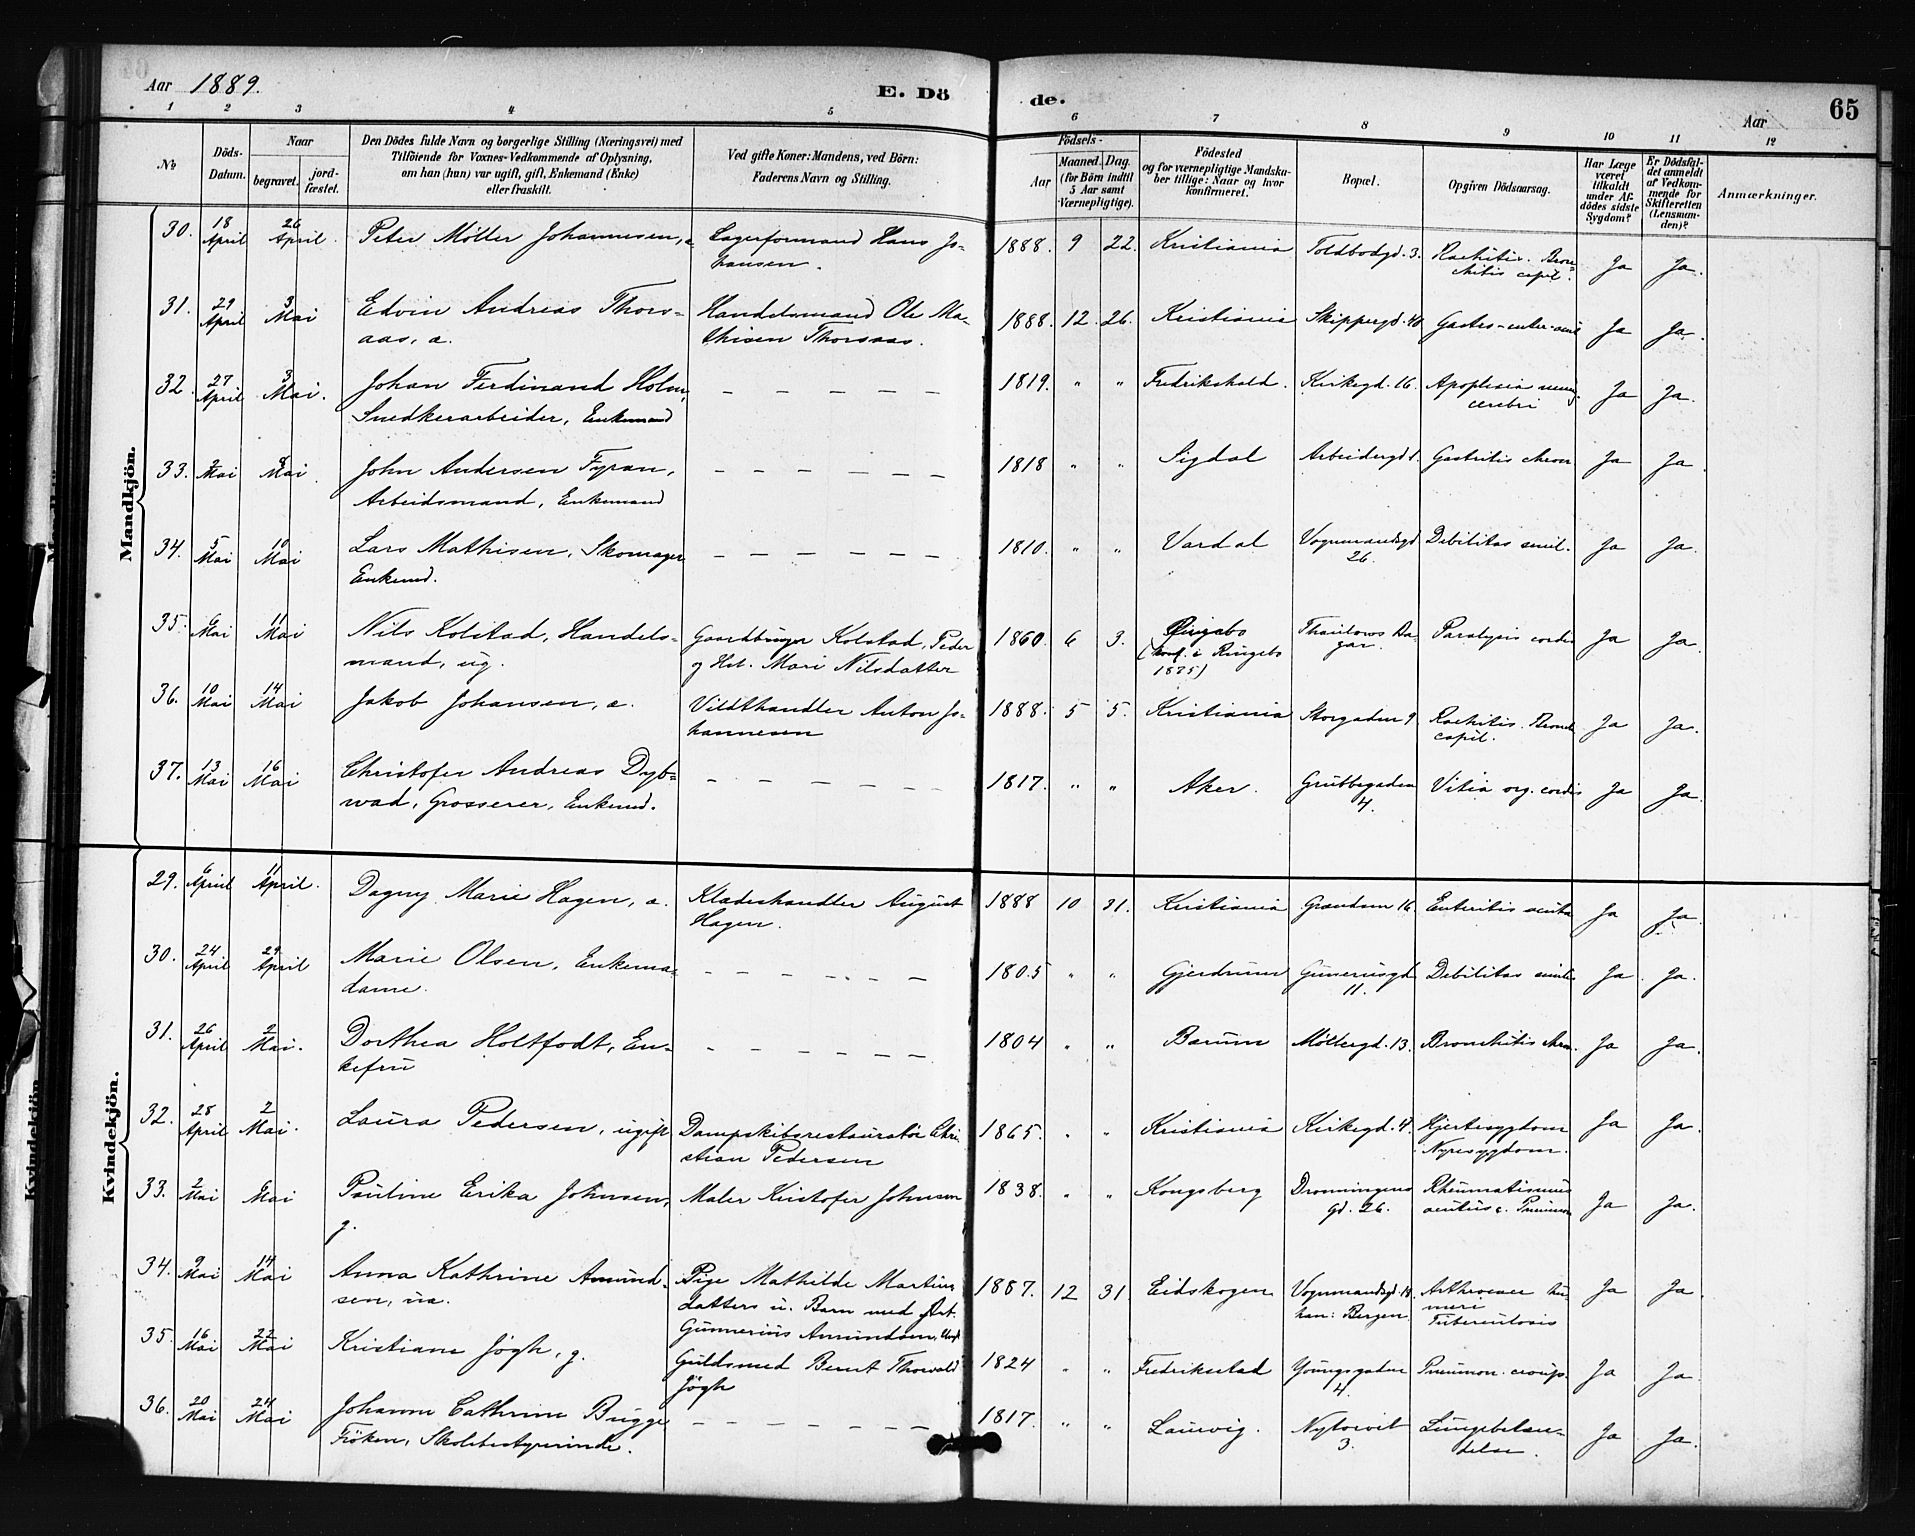 Aar 1889.
E. Dö
de.
Aar
65
1 2 3 4 5 6 7 8 9 10 11 12
№
Döds-Datum.
Naar
begravet.
jord-fæstet.
Den Dödes fulde Navn og borgerlige Stilling (Næringsvei) med
Tilföiende for Voxnes-Vedkommende af Oplysning,
om han (hun) var ugift, gift, Enkemand (Enke)
eller fraskilt.
Ved gifte Koner: Mandens, ved Börn:
Faderens Navn og Stilling.
Födsels-
Aar
Maaned. Dag.
(for Börn indtil
5 Aar samt
Værnepligtige).
Födested
og for værnepligtige Mandska-
ber tillige: Naar og hvor
konfirmeret.
Bopæl.
Opgiven Dödsaarsag.
Har Læge
været
tilkaldt
under Af-
dödes sidste
Sygdom?
Er Dödsfal-
det anmeldt
af Vedkom-
mende for
Skifteretten
(Lensman-
den)?
Anmærkninger.
Mandkjön.
30. 18 April 26 April. Peter Möller Johannesen, a. Lagerformand Hans Jo- 1888. 9 22. Kristiania Toldbodgd. 3. Rachitis. Bron-
hansen. chitis capil. Ja Ja.
31. 29 April 3 Mai Edvin Andreas Thors- Handelsmand Ole Ma- 1888. 12. 26. Kristiania Skippergd. 40 Gastro-enter- Ja Ja.
aas, a. thisen Thorsaas.
32. 27 April 3 Mai. Johan Ferdinand Holm, — — — — — 1819. " " Fredrikshald. Kirkegd. 16. Apoplexia Ja Ja.
Snedkerarbeider, Enkemand cerebri
33. 2 Mai 8 Mai. John Andersen Fyran, — — — — — — 1818 " " Sigdal Arbeidergd 1. Gastritis chron. Ja Ja.
Arbeidsmand, Enkemand
34. 5 Mai 10 Mai Lars Mathisen, Skomager — — — — — — 1810. " " Vardal Vognmandsgd Debilitas senil. Ja Ja.
Enkemd. 26.
35. 6 Mai 11 Mai Nils Kolstad, Handels- Gaardbruger Kolstad, Peder 1860. 6 3. Ringebo Thaulows Ba- Paralysis cordis Ja Ja.
mand, ug. og Hst. Mari Nilsdatter (konf. i Ringebo gar.
1875)
36. 10 Mai 14 Mai Jakob Johansen, a. Vildthandler Anton Jo- 1888. 5 5. Kristiania Storgaden 9 Rachitis. Bronch. Ja Ja.
hannesen capil.
37. 13 Mai 16 Mai Christofer Andreas Dyb- — — — — — 1817. " " Aker. Grubbegaden Vitia org. cordis Ja Ja.
wad, Grosserer, Enkemd. 4.
Kvindekjön.
29. 6 April 11 April. Dagny Marie Hagen, a. Klædeshandler August 1888 10 31. Kristiania Grændsen 16. Enteritis acuta Ja Ja.
Hagen.
30. 24 April 29 April Marie Olsen, Enkema- — — — — — — 1805 " " Gjerdrum Gunerusgd. Debilitas senilis Ja Ja.
dame. 11.
31. 26 April 2 Mai. Dorthea Holtfodt, En- — — — — — — 1804 " " Bærum Möllergd. 13. Bronchitis chron. Ja Ja.
kefru
32. 28 April 2 Mai. Laura Pedersen, ugift Dampskibsrestauratör Chri- 1865. " " Kristiania Kirkegd. 4. Hjertesygdom Ja Ja.
stian Pedersen Nyresygdom.
33. 2 Mai 6 Mai Pauline Erika Johnsen, Maler Kristofer Johnsen 1838. " " Kongsberg Dronningens Rheumatismus Ja Ja.
g. gd. 26. acutus c. Pneumon
34. 9 Mai 14 Mai Anna Kathrine Amund- Pige Mathilde Martins 1887. 12 31 Eidskogen Vognmandsgd. Ja Ja.
sen, ua. datters u. Barn med Arb. han: Bergen. Tuberculosis
Gunnerius Amundsen, Ungk.
35. 16 Mai 22 Mai Kristiane Jögh, g. Guldsmed Bernt Thorvald 1824 " " Fredrikstad Youngsgaden Pneumon. croup. Ja Ja.
Jögh 4.
36. 20 Mai 24 Mai Johanne Cathrine Bugge — — — — — — 1817. " " Laurvig. Nytorvet Lungebetæn- Ja Ja.
Fröken, Skolebestyrerinde. 3. delse.